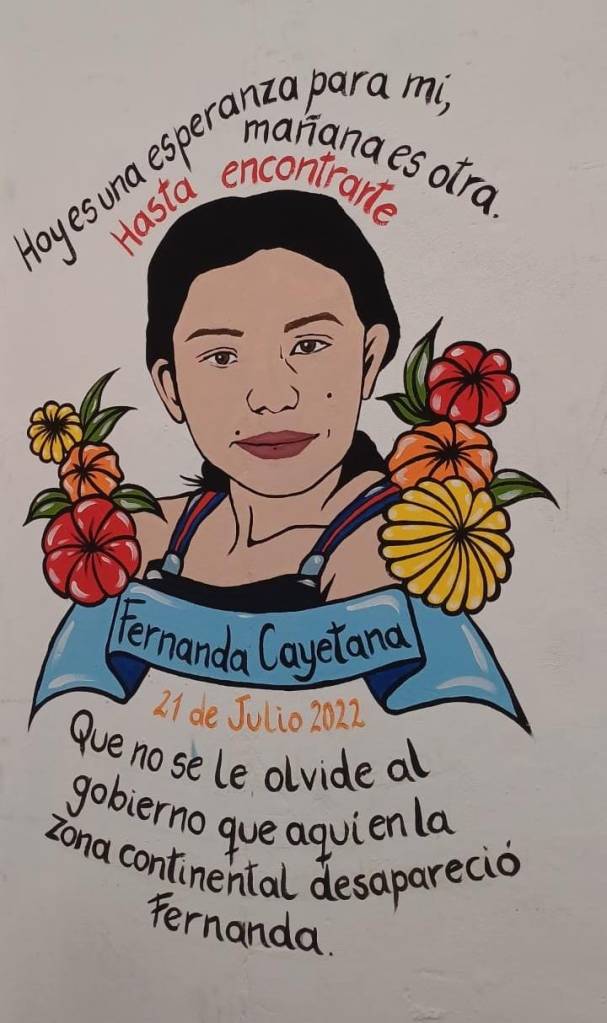 Hoy es una esperanza para mí,
mañana es otra.
Hasta encontrarte
Fernanda Cayetana
21 de Julio 2022
Que no se le olvide al
gobierno que aquí en la
zona continental desapareció
Fernanda.